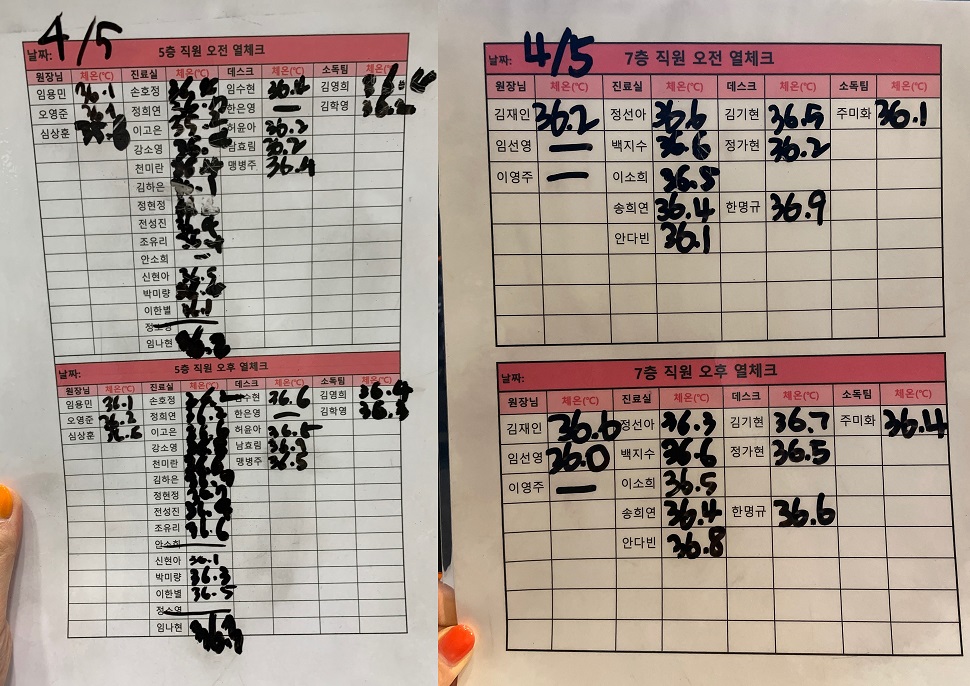 날짜: 4/5 5층 직원 오전 열체크
원장님 체온(℃) 진료실 체온(℃) 데스크 체온(℃) 소독팀 체온(℃)
임용민 36.1 손호정 임수현 36.4 김영희
오영준 정희연 한은영 — 김학영
심상훈 이고은 허윤아 36.2
강소영 남효림 36.2
천미란 맹병주 36.4
김하은
정현정
전성진
조유리
안소희 —
신현아 36.5
박미량
이한별 36.1
정소영
임나현
날짜: 5층 직원 오후 열체크
원장님 체온(℃) 진료실 체온(℃) 데스크 체온(℃) 소독팀 체온(℃)
임용민 36.1 손호정 임수현 36.6 김영희 36.4
오영준 36.2 정희연 36.3 한은영 — 김학영 36.3
심상훈 36.6 이고은 허윤아 36.5
강소영 남효림
천미란 36.6 맹병주 36.5
김하은
정현정 36.7
전성진
조유리 36.6
안소희
신현아 36.1
박미량 36.3
이한별 36.5
정소영
임나현
날짜: 4/5 7층 직원 오전 열체크
원장님 체온(℃) 진료실 체온(℃) 데스크 체온(℃) 소독팀 체온(℃)
김재인 36.2 정선아 36.6 김기현 36.5 주미화 36.1
임선영 — 백지수 36.6 정가현 36.2
이영주 — 이소희 36.5
송희연 36.4 한명규 36.9
안다빈 36.1
날짜: 7층 직원 오후 열체크
원장님 체온(℃) 진료실 체온(℃) 데스크 체온(℃) 소독팀 체온(℃)
김재인 36.6 정선아 36.3 김기현 36.7 주미화 36.4
임선영 36.0 백지수 36.6 정가현 36.5
이영주 — 이소희 36.5
송희연 36.4 한명규 36.6
안다빈 36.8